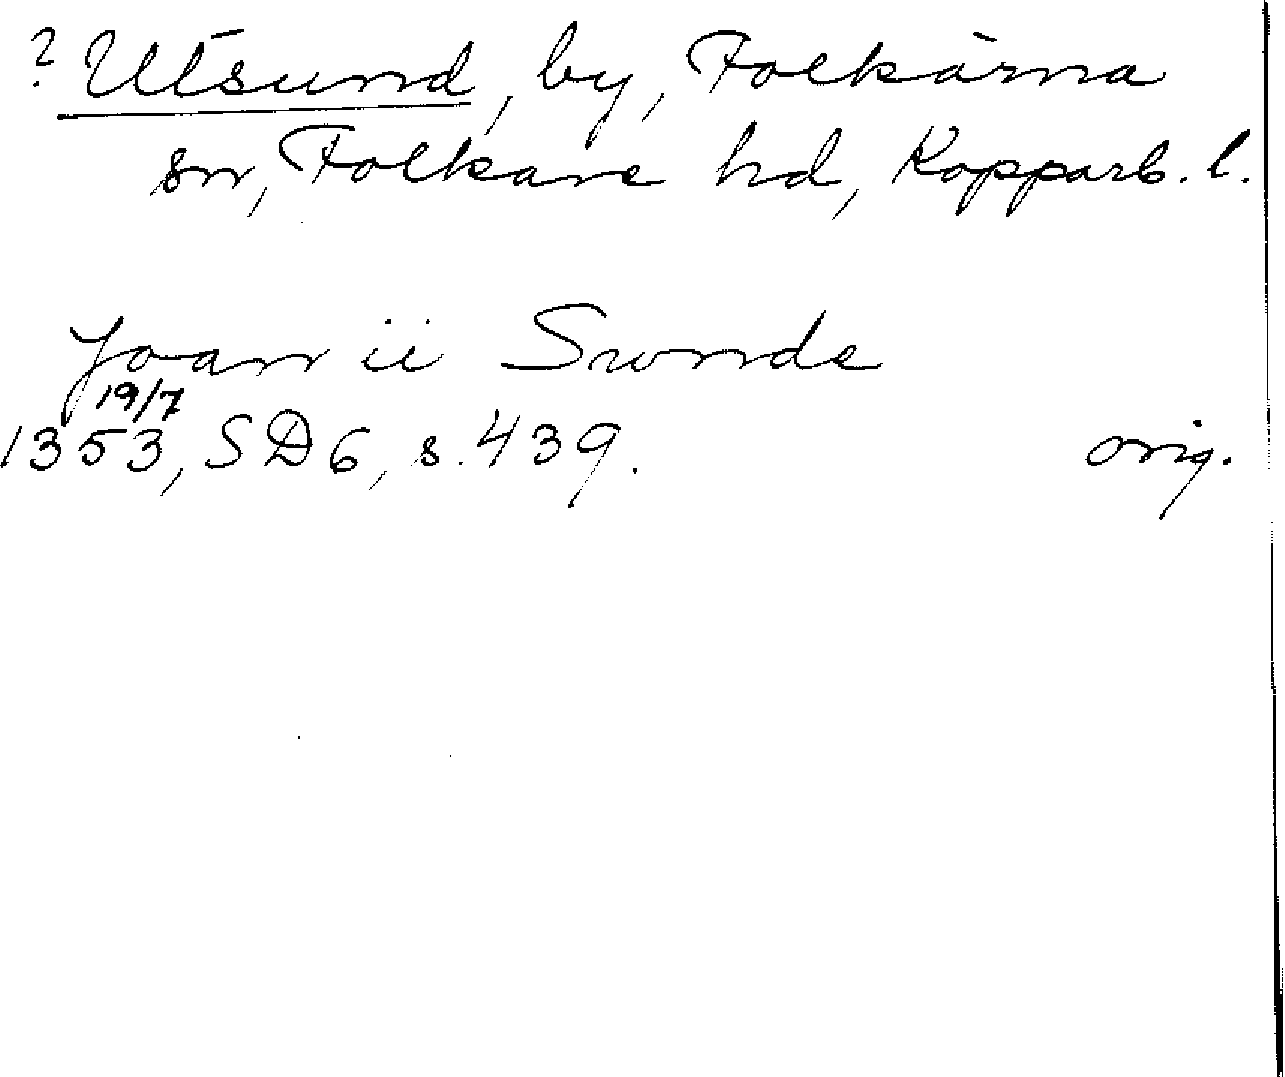 ? Utsund, by, Folkärna
sn, Folkare hd, Kopparb. l.
Joan ii Swnde
19/7
1353, SD6, s. 439. orig.